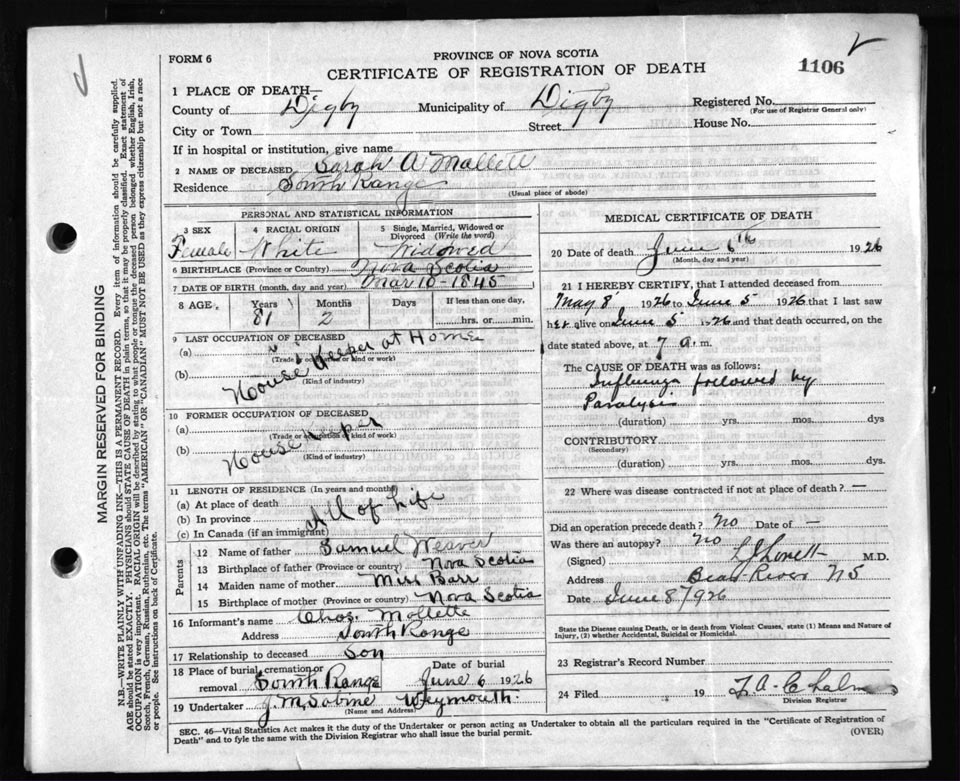 FORM 6
PROVINCE OF NOVA SCOTIA
CERTIFICATE OF REGISTRATION OF DEATH
1106
1 PLACE OF DEATH—
County of Digby Municipality of Digby Registered No.
(For use of Registrar General only)
City or Town Street House No.
If in hospital or institution, give name
2 NAME OF DECEASED Sarah A Mallett
Residence South Range
(Usual place of abode)
PERSONAL AND STATISTICAL INFORMATION
3 SEX 4 RACIAL ORIGIN 5 Single, Married, Widowed or Divorced (Write the word)
Female White Widowed
6 BIRTHPLACE (Province or Country) Nova Scotia
7 DATE OF BIRTH (month, day and year) Mar 10 - 1845
8 AGE Years Months Days If less than one day,
81 2 hrs. or min.
9 LAST OCCUPATION OF DECEASED
(a) (Trade or occupation or kind or work)
(b) House Keeper at Home
(Kind of industry)
10 FORMER OCCUPATION OF DECEASED
(a) (Trade or occupation or kind or work)
(b) House Keeper
(Kind of industry)
11 LENGTH OF RESIDENCE (In years and months)
(a) At place of death
(b) In province All of Life
(c) In Canada (if an immigrant)
Parents
12 Name of father Samuel Weaver
13 Birthplace of father (Province or country) Nova Scotia
14 Maiden name of mother Miss Barr
15 Birthplace of mother (Province or country) Nova Scotia
16 Informant's name Chas. Mollette
Address South Range
17 Relationship to deceased Son
18 Place of burial, cremation or removal South Range
Date of burial June 6 1926
19 Undertaker J. M. Sabine Weymouth
(Name and Address)
MEDICAL CERTIFICATE OF DEATH
20 Date of death June 6th 1926
(Month, day and year)
21 I HEREBY CERTIFY, that I attended deceased from
May 8 1926 to June 5 1926 that I last saw
her alive on June 5 1926 and that death occurred, on the
date stated above, at 7 a. m.
The CAUSE OF DEATH was as follows:
Influenza followed by
Paralysis
(duration) yrs. mos. dys
CONTRIBUTORY
(Secondary)
(duration) yrs. mos. dys.
22 Where was disease contracted if not at place of death? —
Did an operation precede death? no Date of —
Was there an autopsy? no
(Signed) L J Lovett M.D.
Address Bear River NS
Date June 8/926
State the Disease causing Death, or in death from Violent Causes, state (1) Means and Nature of
Injury, (2) whether Accidental, Suicidal or Homicidal.
23 Registrar's Record Number
24 Filed 19
Division Registrar
SEC. 46—Vital Statistics Act makes it the duty of the Undertaker or person acting as Undertaker to obtain all the particulars required in the "Certificate of Registration of
Death" and to fyle the same with the Division Registrar who shall issue the burial permit. (OVER)
MARGIN RESERVED FOR BINDING
N.B.—WRITE PLAINLY WITH UNFADING INK—THIS IS A PERMANENT RECORD. Every item of information should be carefully supplied.
AGE should be stated EXACTLY. PHYSICIANS should STATE CAUSE OF DEATH in plain terms, so that it may be properly classified. Exact statement of
OCCUPATION is very important. RACIAL ORIGIN will be described by stating to what people or tongue the deceased person belonged whether English, Irish,
Scotch, French, German, Russian, Ruthenian, etc. The terms "AMERICAN" or "CANADIAN" MUST NOT BE USED as they express citizenship but not a race
or people. See instructions on back of Certificate.